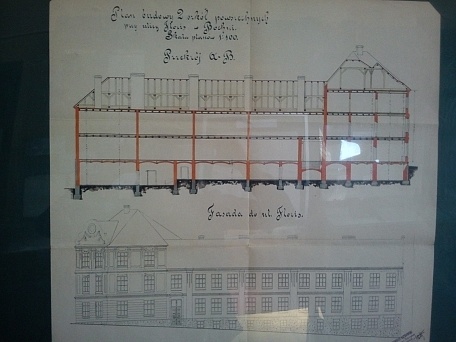 Plan budowy 2 szkół powszechnych
przy ulicy Floris w Bochni.
Skala planów 1:100.
Przekrój A-B.
Fasada do ul. Floris.